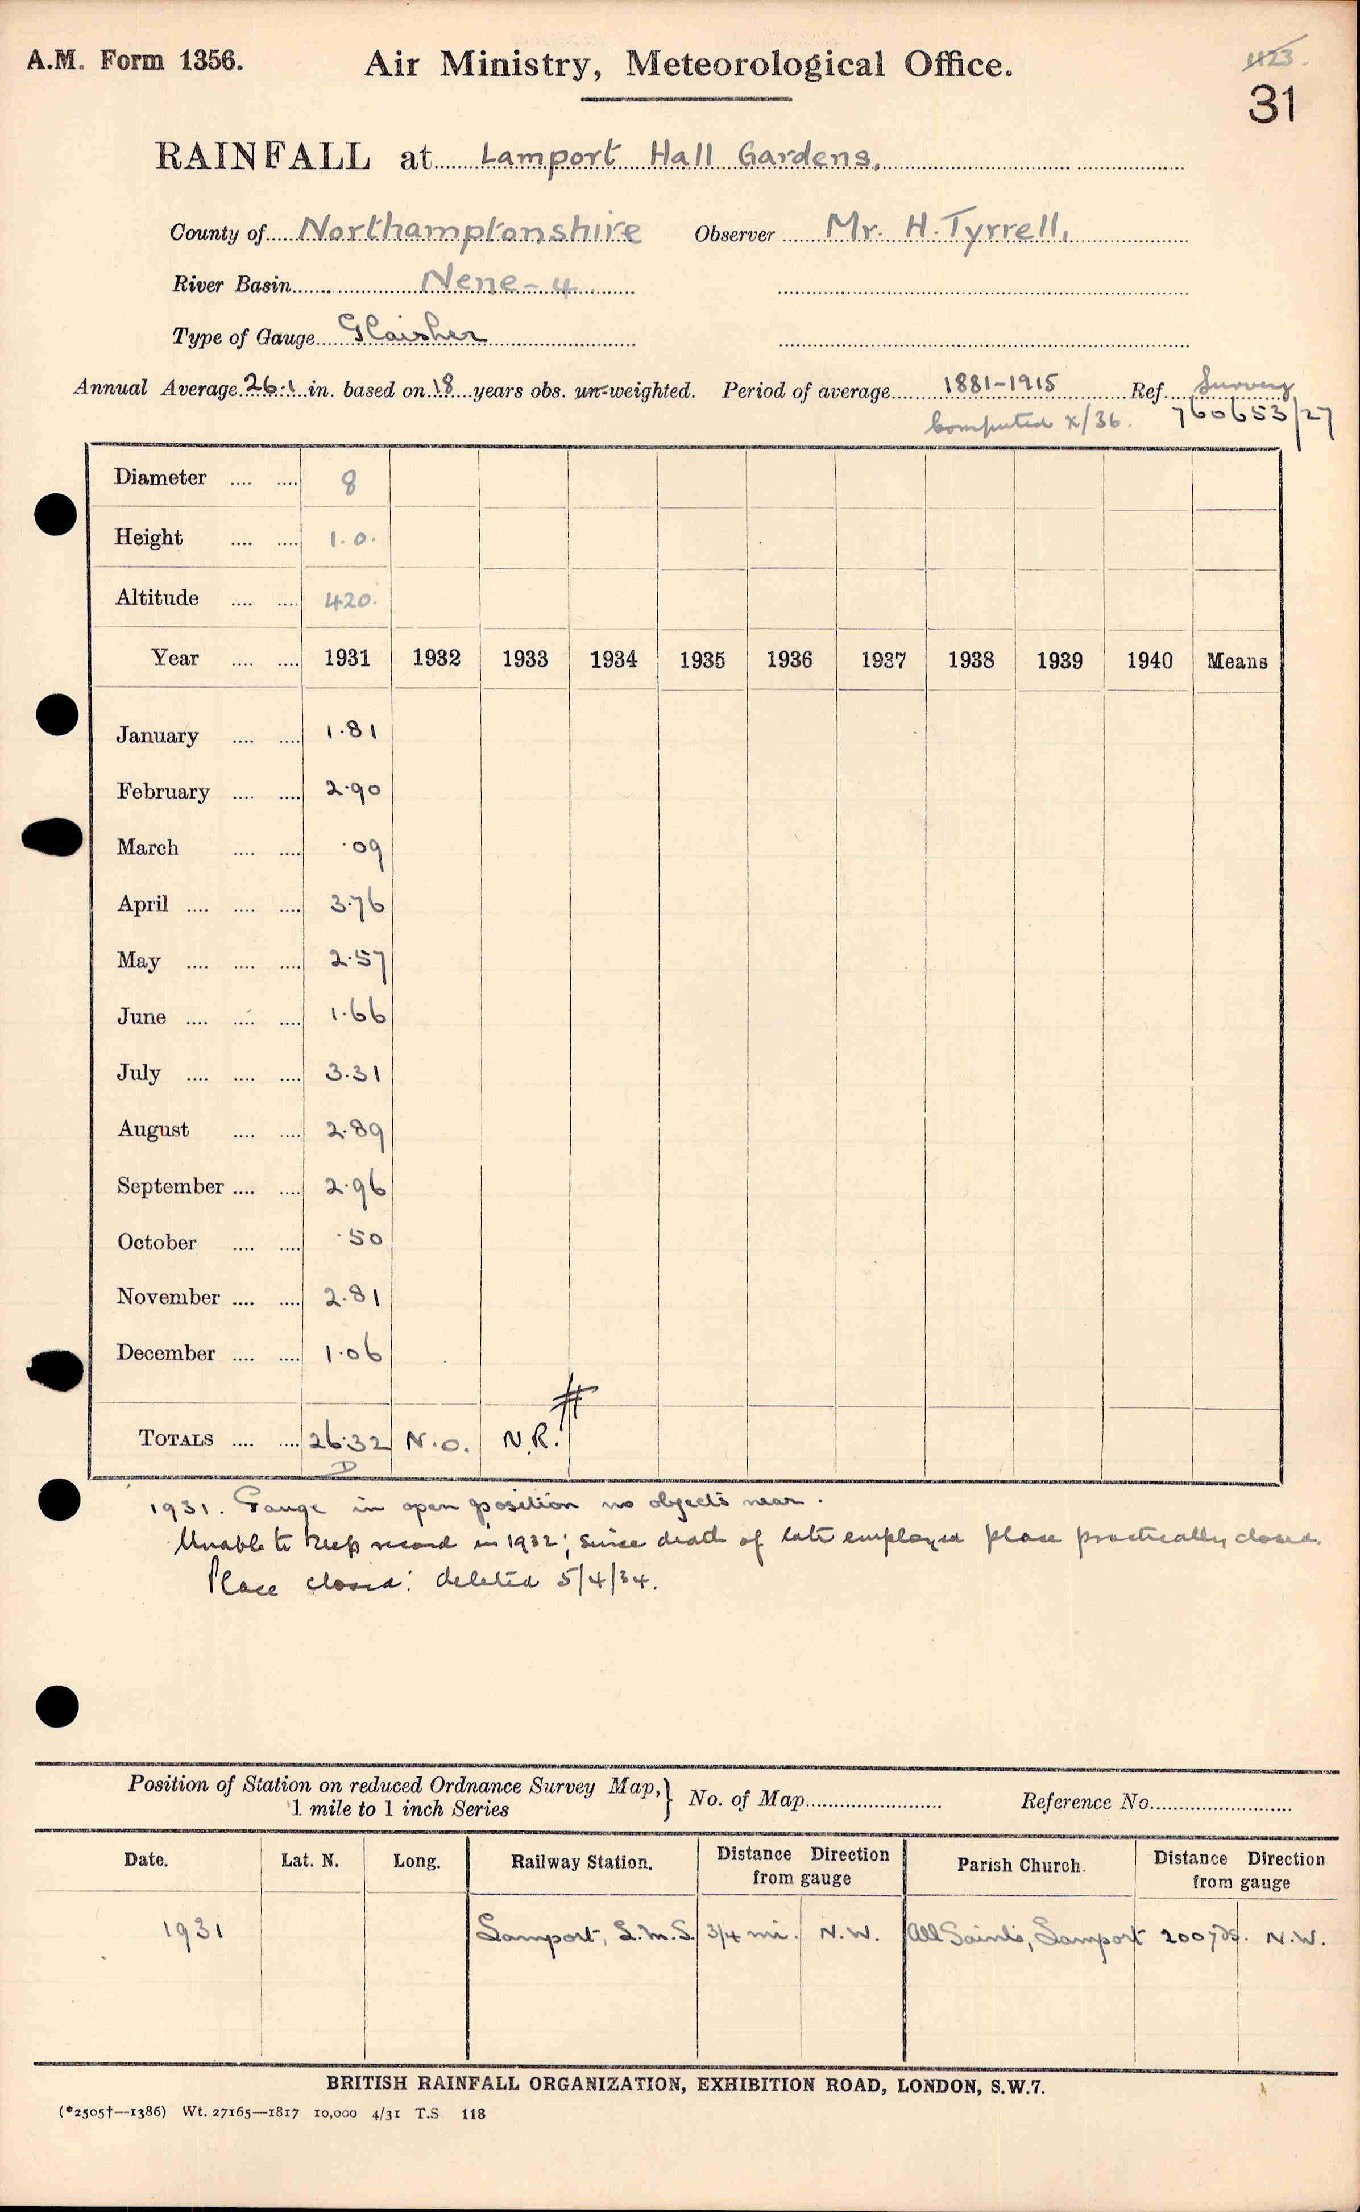 A.M. Form 1356.
Air Ministry, Meteorological Office.
423.
31
RAINFALL at Lamport Hall Gardens.
County of Northamptonshire Observer Mr. H. Tyrrell,
River Basin Nene - 4
Type of Gauge Glaisher
Annual Average 26.1 in. based on 18 years obs. un-weighted. Period of average 1881-1915 Ref. Survey
Computed x/36. 760653/27
Diameter .... .... 8
Height .... .... 1.0.
Altitude .... .... 420.
Year .... .... 1931 1932 1933 1934 1935 1936 1937 1938 1939 1940 Means
January .... .... 1.81
February .... .... 2.90
March .... .... .09
April .... .... .... 3.76
May .... .... .... 2.57
June .... .... .... 1.66
July .... .... .... 3.31
August .... .... 2.89
September .... .... 2.96
October .... .... .50
November .... .... 2.81
December .... .... 1.06
#
TOTALS .... .... 26.32 N.O. N.R.
D
1931. Gauge in open position no objects near.
Unable to keep record in 1932; since death of late employer place practically closed.
Place closed: deleted 5/4/34.
Position of Station on reduced Ordnance Survey Map, } No. of Map Reference No.
1 mile to 1 inch Series
Date. Lat. N. Long. Railway Station. Distance Direction from gauge Parish Church. Distance Direction from gauge
1931 Lamport, L.M.S. 3/4 mi. N.W. All Saints, Lamport 200 yds. N.W.
BRITISH RAINFALL ORGANIZATION, EXHIBITION ROAD, LONDON, S.W.7.
(*2505†—1386) Wt. 27165—1817 10,000 4/31 T.S 118